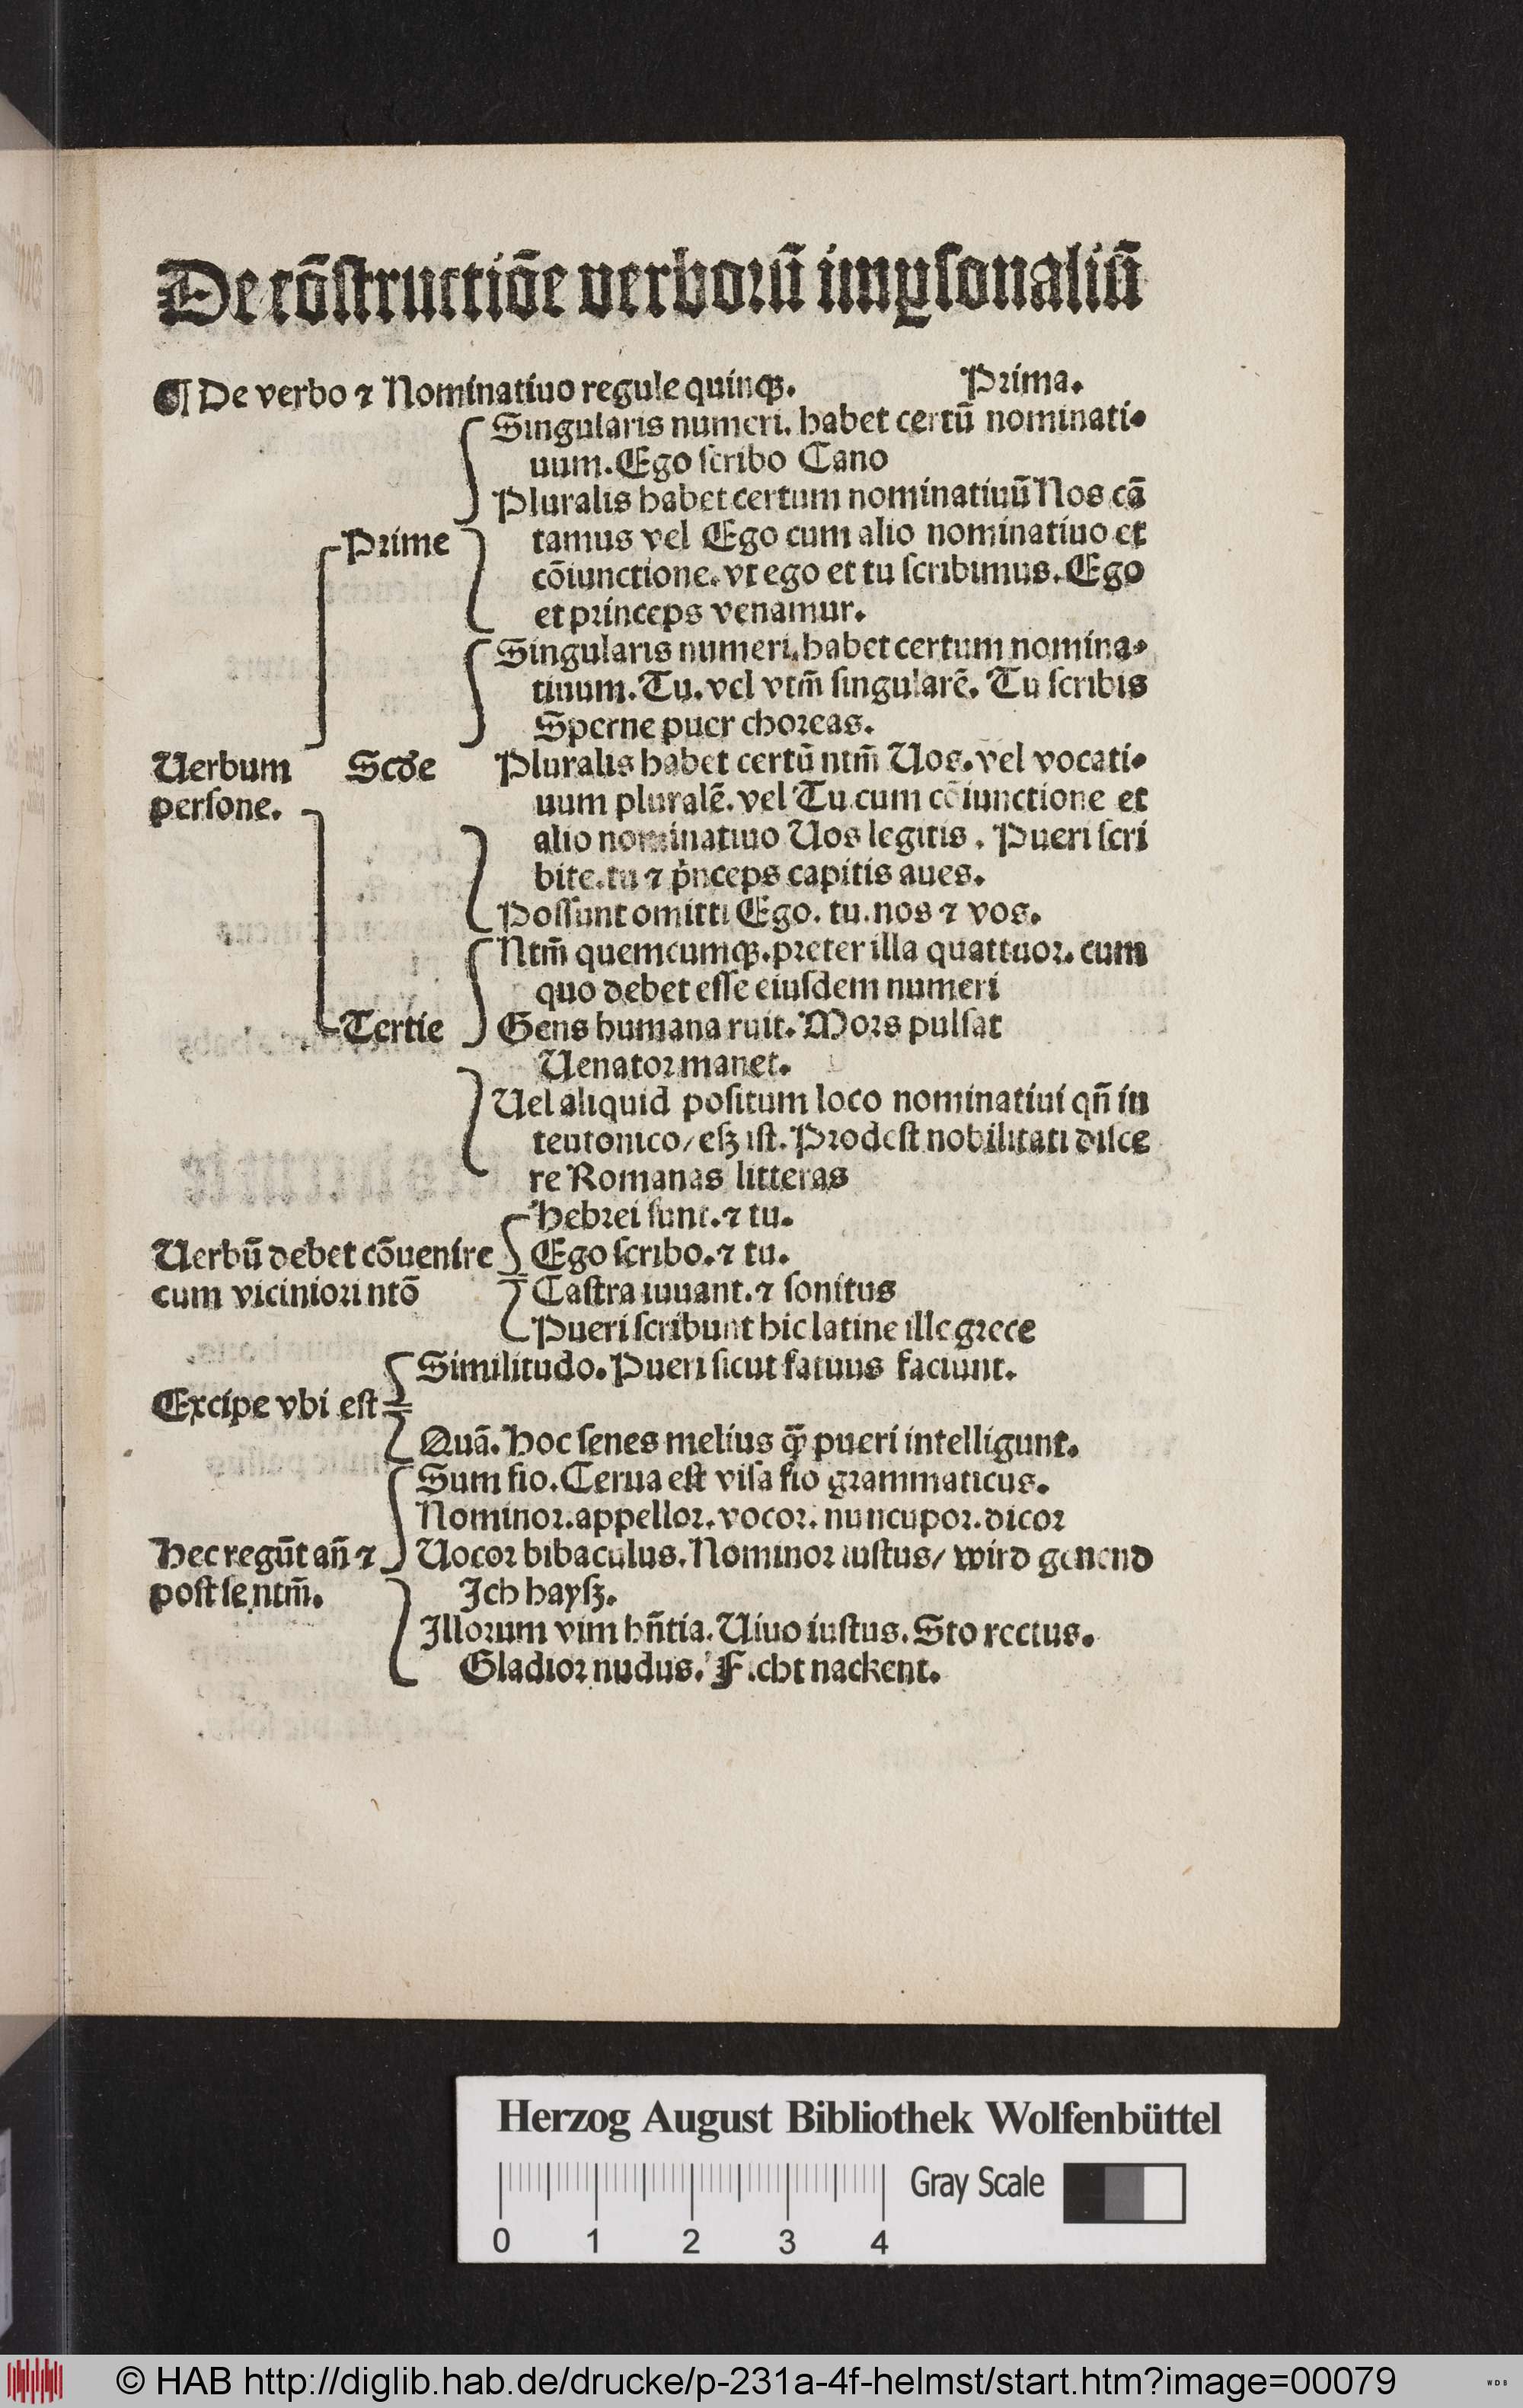 De cōſtructiōe verborū imꝑſonaliū
¶ De verbo ⁊ Nominatiuo regule quinqꝫ. Prima.
Singularis numeri. habet certū nominati⸗
uum. Ego ſcribo Cano
Pluralis habet certum nominatiuū Nos cā
Prime tamus vel Ego cum alio nominatiuo et
cōiunctione. vt ego et tu ſcribimus. Ego
et princeps venamur.
Singularis numeri. habet certum nomina⸗
tiuum. Tu. vel vtm̄ ſingularē. Tu ſcribis
Sperne puer choreas.
Uerbum Scđe Pluralis habet certū ntm̄ Uos. vel vocati⸗
perſone. uum pluralē. vel Tu cum cōiunctione et
alio nominatiuo Uos legitis. Pueri ſcri
bite. tu ⁊ p̄nceps capitis aues.
Poſſunt omitti Ego. tu. nos ⁊ vos.
Ntm̄ quemcumqꝫ. preter illa quattuor. cum
quo debet eſſe eiuſdem numeri
Tertie Gens humana ruit. Mors pulſat
Uenator manet.
Uel aliquid poſitum loco nominatiui qn̄ in
teutonico/ eſꝫ iſt. Prodeſt nobilitati diſce
re Romanas litteras
Hebrei ſunt. ⁊ tu.
Uerbū debet cōuenire Ego ſcribo. ⁊ tu.
cum viciniori ntō Caſtra iuuant. ⁊ ſonitus
Pueri ſcribunt hic latine ille grece
Similitudo. Pueri ſicut fatuus faciunt.
Excipe vbi eſt
Quā. Hoc ſenes melius ꝙ̄ pueri intelligunt.
Sum fio. Cerua eſt viſa fio grammaticus.
Nominor. appellor. vocor. nuncupor. dicor
Hec regūt an̄ ⁊ Uocor bibaculus. Nominor iuſtus/ wird genend
poſt ſe ntm̄. Ich hayſꝫ.
Illorum vim hn̄tia. Uiuo iuſtus. Sto rectus.
Gladior nudus. F.cht nackent.
Herzog August Bibliothek Wolfenbüttel
Gray Scale
0 1 2 3 4
© HAB http://diglib.hab.de/drucke/p-231a-4f-helmst/start.htm?image=00079
WDB